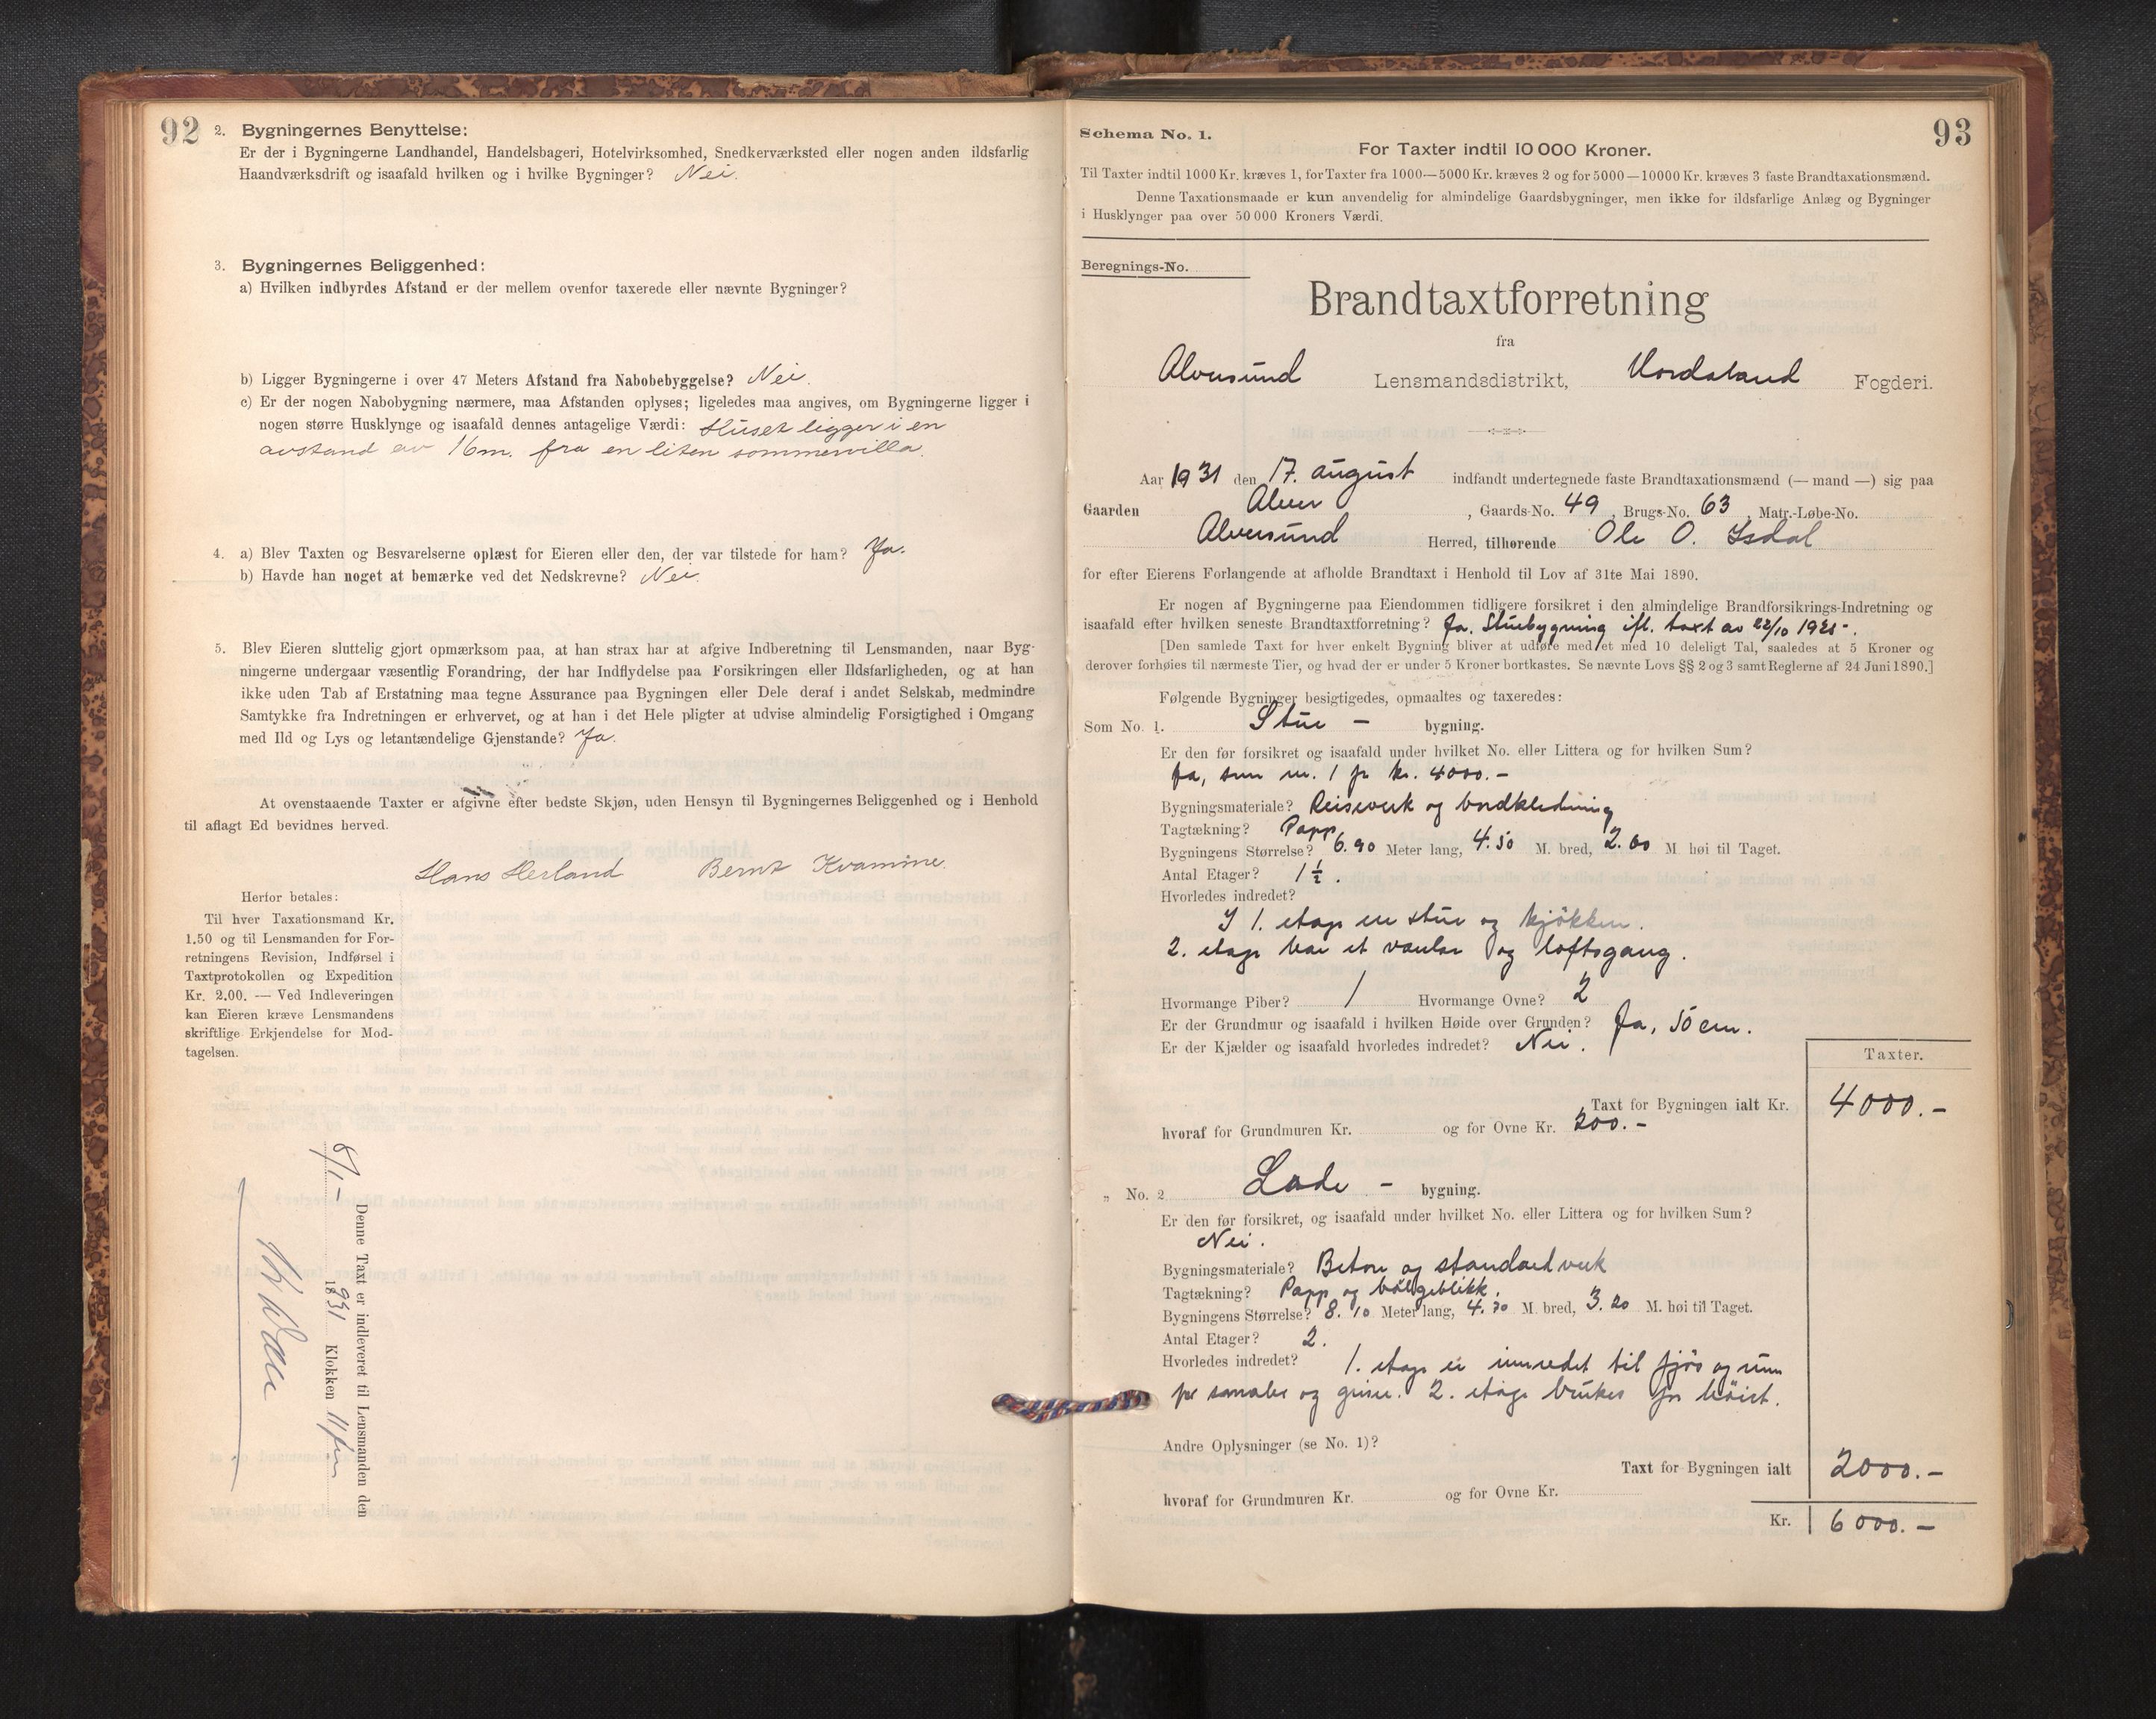 92
2. Bygningernes Benyttelse:
Er der i Bygningerne Landhandel, Handelsbageri, Hotelvirksomhed, Snedkerværksted eller nogen anden ildsfarlig
Haandværksdrift og isaafald hvilken og i hvilke Bygninger? Nei.
3. Bygningernes Beliggenhed:
a) Hvilken indbyrdes Afstand er der mellem ovenfor taxerede eller nævnte Bygninger?
b) Ligger Bygningerne i over 47 Meters Afstand fra Nabobebyggelse? Nei.
c) Er der nogen Nabobygning nærmere, maa Afstanden oplyses; ligeledes maa angives, om Bygningerne ligger i
nogen større Husklynge og isaafald dennes antagelige Værdi: Huset ligger i en
avstand av 16m. fra en liten sommervilla.
4. a) Blev Taxten og Besvarelserne oplæst for Eieren eller den, der var tilstede for ham? Ja.
b) Havde han noget at bemærke ved det Nedskrevne? Nei.
5. Blev Eieren sluttelig gjort opmærksom paa, at han strax har at afgive Indberetning til Lensmanden, naar Byg-
ningerne undergaar væsentlig Forandring, der har Indflydelse paa Forsikringen eller Ildsfarligheden, og at han
ikke uden Tab af Erstatning maa tegne Assurance paa Bygningen eller Dele deraf i andet Selskab, medmindre
Samtykke fra Indretningen er erhvervet, og at han i det Hele pligter at udvise almindelig Forsigtighed i Omgang
med Ild og Lys og letantændelige Gjenstande? Ja.
At ovenstaaende Taxter er afgivne efter bedste Skjøn, uden Hensyn til Bygningernes Beliggenhed og i Henhold
til aflagt Ed bevidnes herved.
Hans Herland Bernt Kvamme.
Herfor betales:
Til hver Taxationsmand Kr.
1.50 og til Lensmanden for For-
retningens Revision, Indførsel i
Taxtprotokollen og Expedition
Kr. 2.00. — Ved Indleveringen
kan Eieren kræve Lensmandens
skriftlige Erkjendelse for Mod-
tagelsen.
Denne Taxt er indleveret til Lensmanden den
1931 Klokken 11 fm
93
Schema No. 1.
For Taxter indtil 10 000 Kroner.
Til Taxter indtil 1000 Kr. kræves 1, for Taxter fra 1000—5000 Kr. kræves 2 og for 5000—10000 Kr. kræves 3 faste Brandtaxationsmænd.
Denne Taxationsmaade er kun anvendelig for almindelige Gaardsbygninger, men ikke for ildsfarlige Anlæg og Bygninger
i Husklynger paa over 50 000 Kroners Værdi.
Beregnings-No.
Brandtaxtforretning
fra
Alversund Lensmandsdistrikt, Nordaland Fogderi.
Aar 1931 den 17. august indfandt undertegnede faste Brandtaxationsmænd (— mand —) sig paa
Gaarden Alver, Gaards-No. 49, Brugs-No. 63, Matr.-Løbe-No.
Alversund Herred, tilhørende Ole O. Isdal
for efter Eierens Forlangende at afholde Brandtaxt i Henhold til Lov af 31te Mai 1890.
Er nogen af Bygningerne paa Eiendommen tidligere forsikret i den almindelige Brandforsikrings-Indretning og
isaafald efter hvilken seneste Brandtaxtforretning? Ja. Stuebygning ifl. taxt av 22/10 1921-.
[Den samlede Taxt for hver enkelt Bygning bliver at udføre med et med 10 deleligt Tal, saaledes at 5 Kroner og
derover forhøies til nærmeste Tier, og hvad der er under 5 Kroner bortkastes. Se nævnte Lovs §§ 2 og 3 samt Reglerne af 24 Juni 1890.]
Følgende Bygninger besigtigedes, opmaaltes og taxeredes:
Som No. 1. Stue - bygning.
Er den før forsikret og isaafald under hvilket No. eller Littera og for hvilken Sum?
Ja, som nr. 1 for kr. 4000.-
Bygningsmateriale? Reiseverk og bordkledning
Tagtækning? Papp
Bygningens Størrelse? 6.90 Meter lang, 4.50 M. bred, 2.60 M høi til Taget.
Antal Etager? 1½.
Hvorledes indredet?
I 1. etage en stue og kjökken.
2. etage har et værelse og loftsgang.
Hvormange Piber? 1 Hvormange Ovne? 2
Er der Grundmur og isaafald i hvilken Høide over Grunden? Ja, 50 cm.
Er der Kjælder og isaafald hvorledes indredet? Nei.
Taxter.
Taxt for Bygningen ialt Kr. 4000.-
hvoraf for Grundmuren Kr. og for Ovne Kr. 200.-
" No. 2 Lade - bygning.
Er den før forsikret, og isaafald under hvilket No. eller Littera og for hvilken Sum?
Nei.
Bygningsmateriale? Beton og standardverk
Tagtækning? Papp og bölgeblikk.
Bygningens Størrelse? 8.10 Meter lang, 4.70 M. bred, 3.20 M. høi til Taget.
Antal Etager? 2.
Hvorledes indredet? 1. etage er innredet til fjös og rum
for smaler og griser. 2. etage brukes for höiet.
Andre Oplysninger (se No. 1)?
Taxt for Bygningen ialt 2000.-
hvoraf for Grundmuren Kr. og for Ovne Kr.
Kr. 6000.-